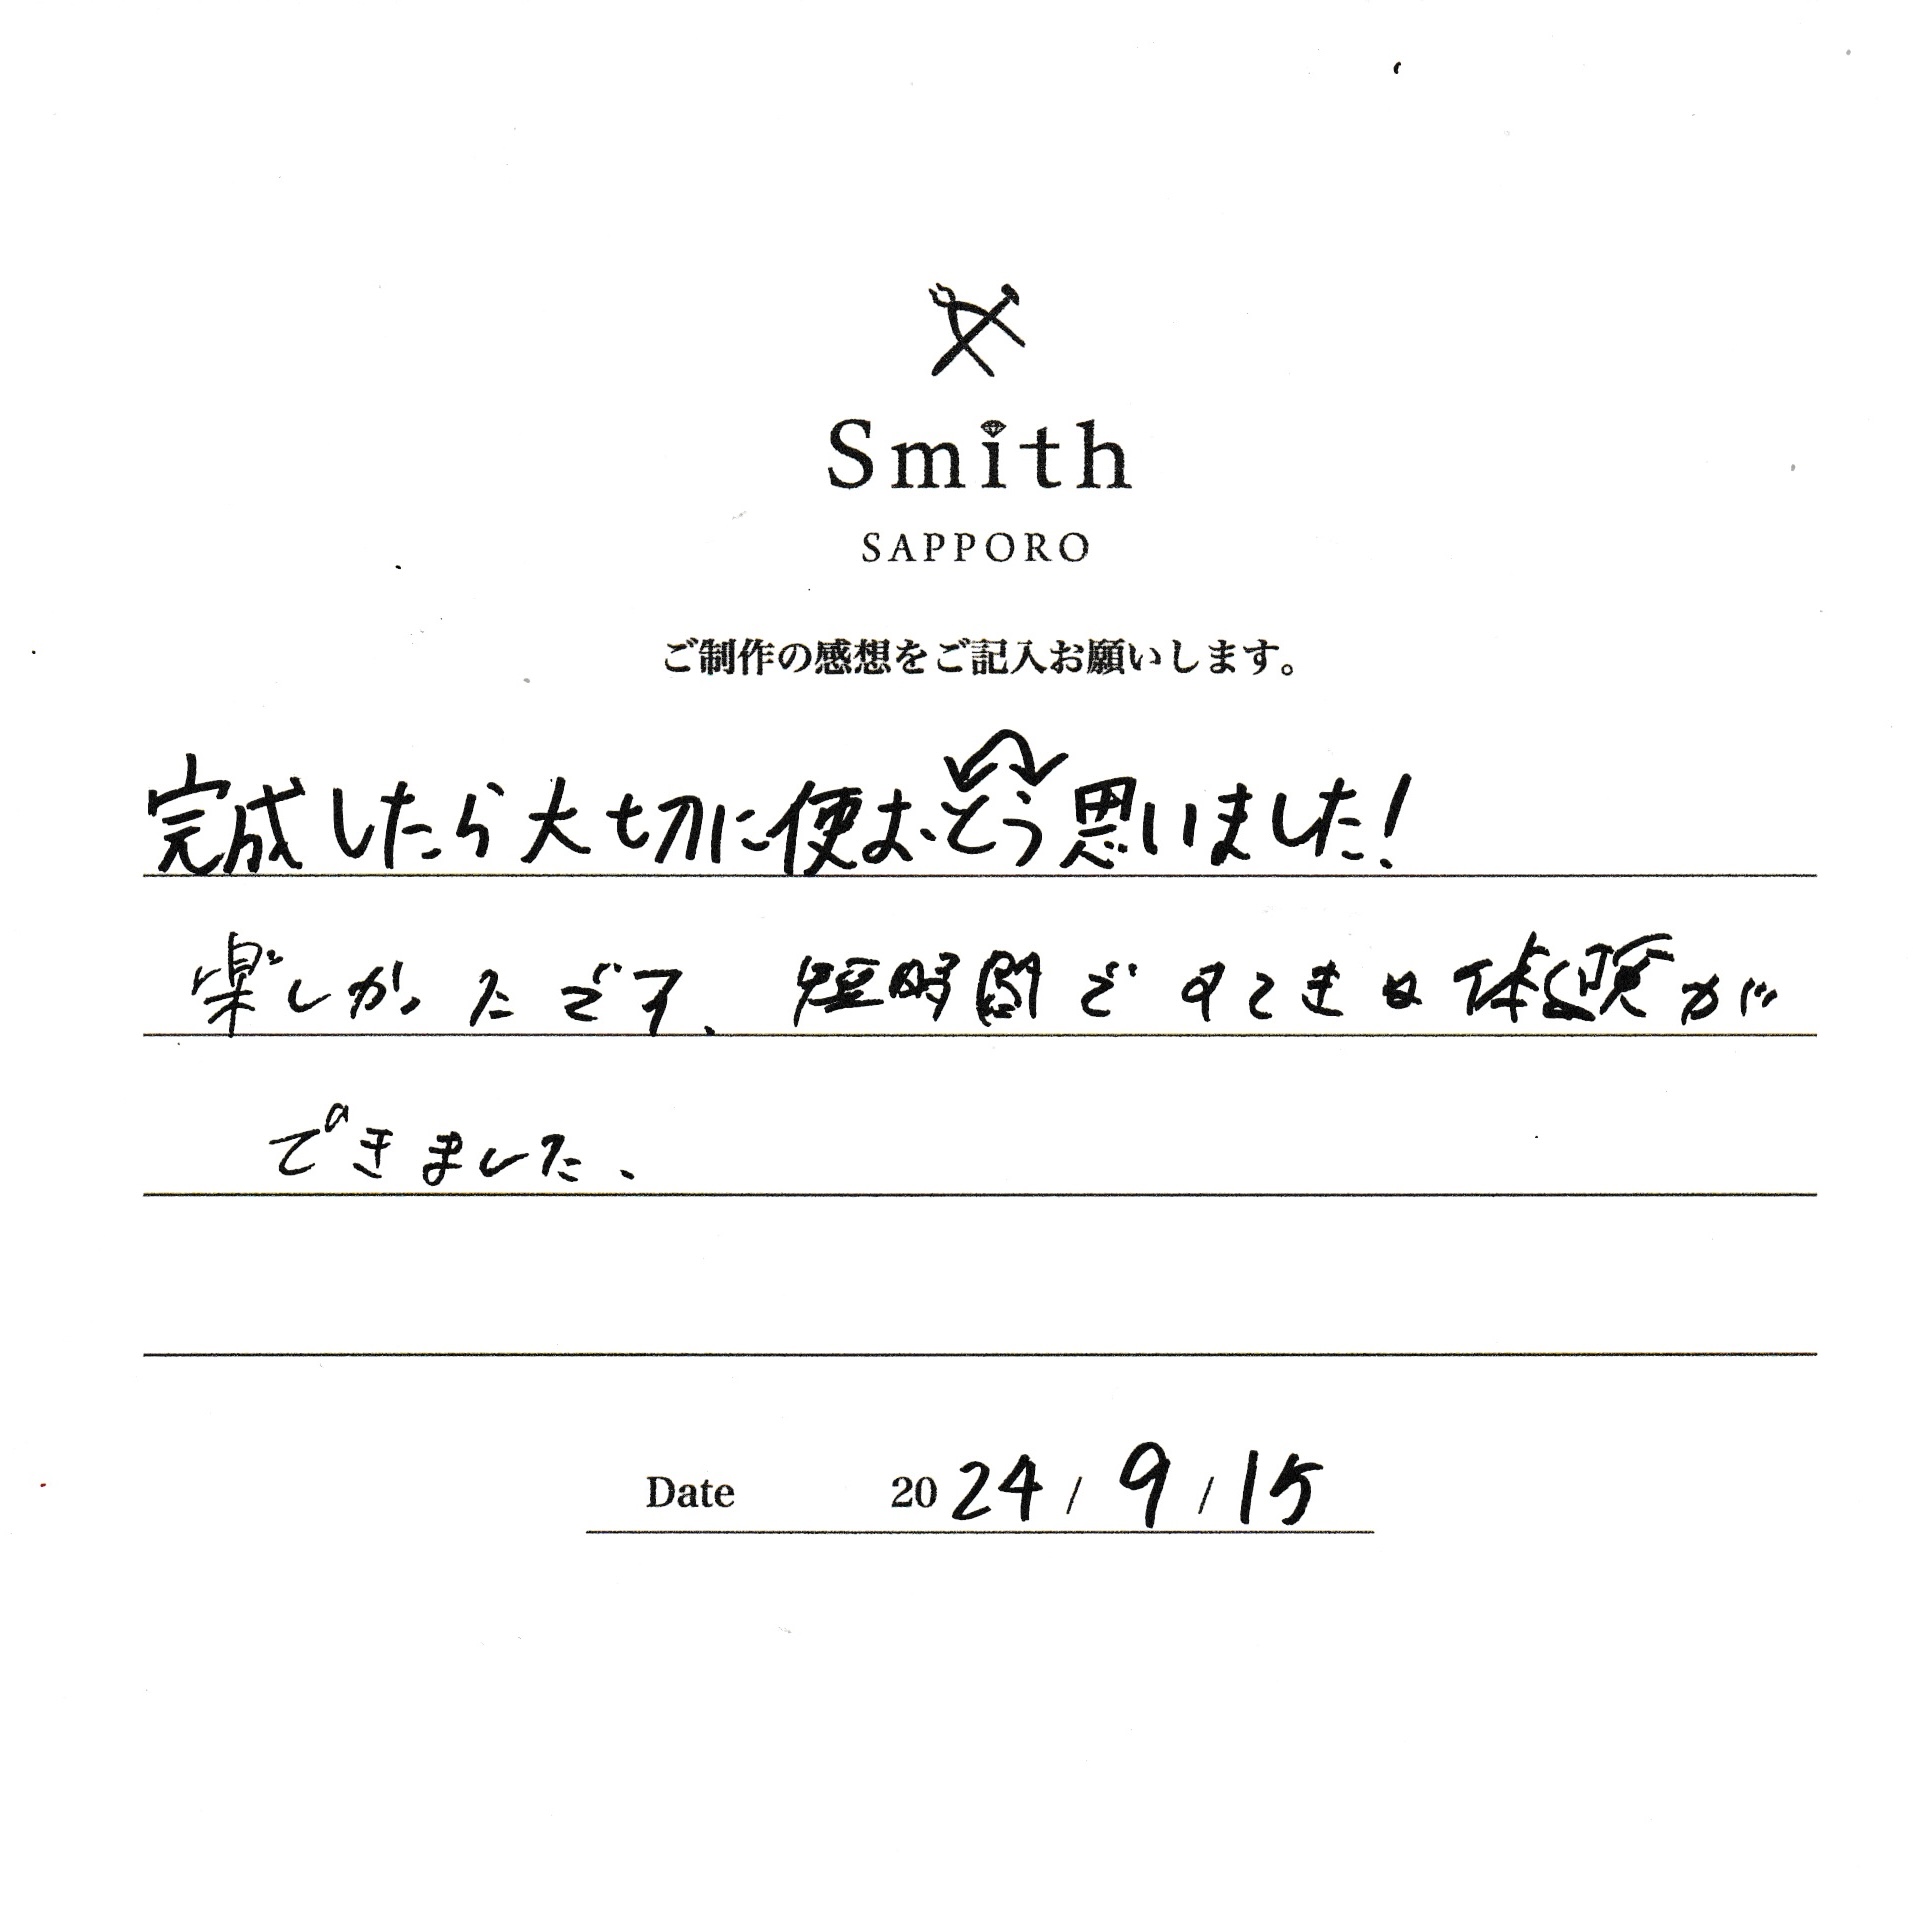 Smith
SAPPORO
ご制作の感想をご記入お願いします。
完成したら大切に便おとう思いました!
楽しかったです、短時間ですてきな体験が
できました、
Date 2024/9/15